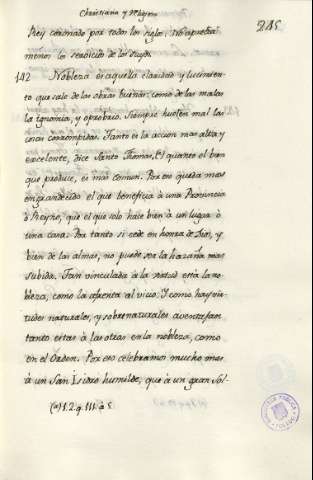 Christiana y
245
Rey coronado por todos los siglos.
menos los servicios de los suyos.
142 Nobleza es aquella claridad y lucimiento
que sale de las obras buenas: como de las malas
la ignominia, y oprobrio. Siempre huelen mal las
cosas corrompidas. Tanto es la accion mas alta, y
excelente, dice Santo Thomas, (a) quanto el bien
que produce, es mas comun. Por eso queda mas
engrandecido el que beneficia à una Provincia
ò Reyno, que el que solo hace bien à un lugar ò
una casa. Por tanto si cede en honra de Dios, y
bien de las almas, no puede ser la hazaña mas
subida. Tan vinculada à la virtud està la no-
bleza, como la afrenta al vicio. Y como hay vir-
tudes naturales, y sobrenaturales, aventajan
tanto estas à las otras en la nobleza, como
en el Orden. Por eso celebramos mucho mas
à un San Isidro humilde, que à un gran Sol-
(a) 1. 2. q. 111. a. 5.
BIBLIOTECA PUBLICA
TOLEDO